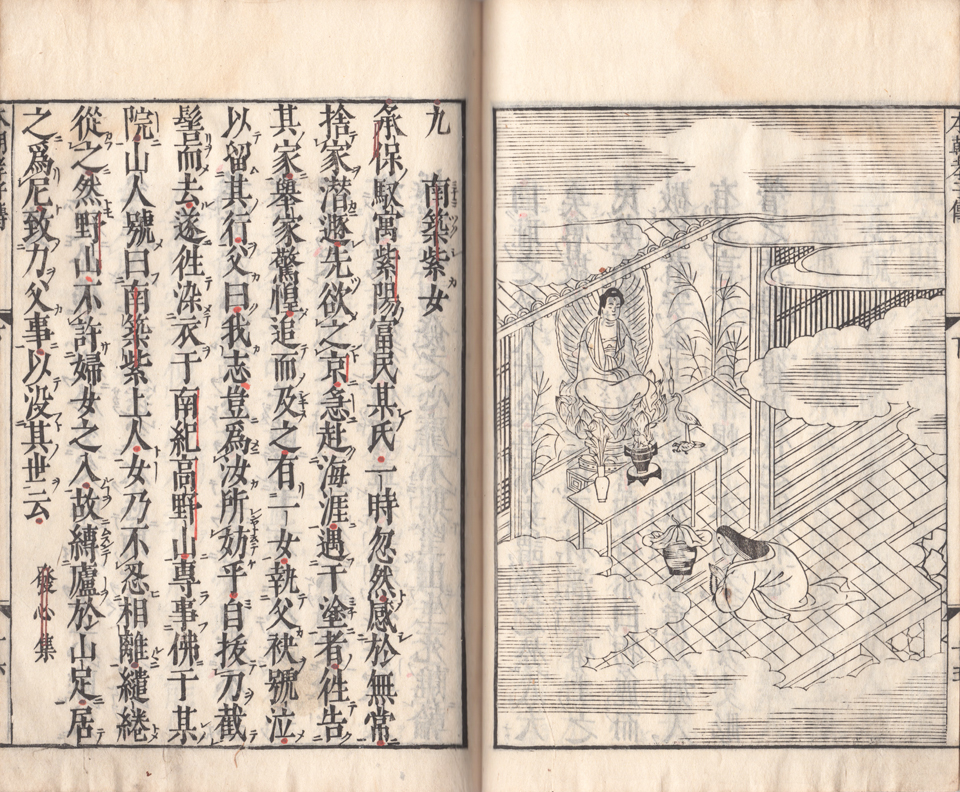 本朝孝子傳
九 南築紫女
承保馭寓紫陽富民某氏一時忽然感於無常
捨家潜遯先欲之京急赴海涯遇于塗者徃告
其家舉家驚惶追而及之有一女執父袂號泣
以留其行父曰我志豈爲汝所妨乎自拔刀截
髻而去遂徃染衣于南紀高野山專事佛于某
院山人號曰南築紫上人女乃不忍相離繾綣
從之然野山不許婦女之入故縛廬於山足居
之爲尼致力父事以没其世云 發心集
本朝孝子傳